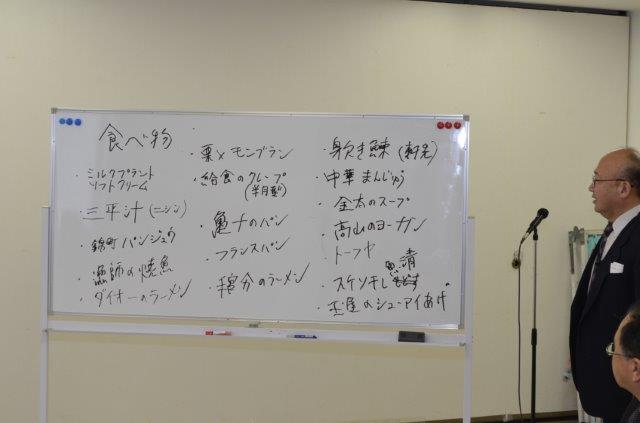 食べ物
・ミルクプラント
ソフトクリーム
・三平汁(ニシン)
・錦町パンジュウ
・漁師の焼魚
・ダイオーのラーメン
・栗×モンブラン
・給食のクレープ
(半月型)
・亀十のパン
・フランスパン
・のラーメン
・身欠き鰊
・中華まんじゅう
・金太のスープ
・高山のヨーカン
トーフヤ
・スケソ干し 魚清
・玉屋のシューアイあげ